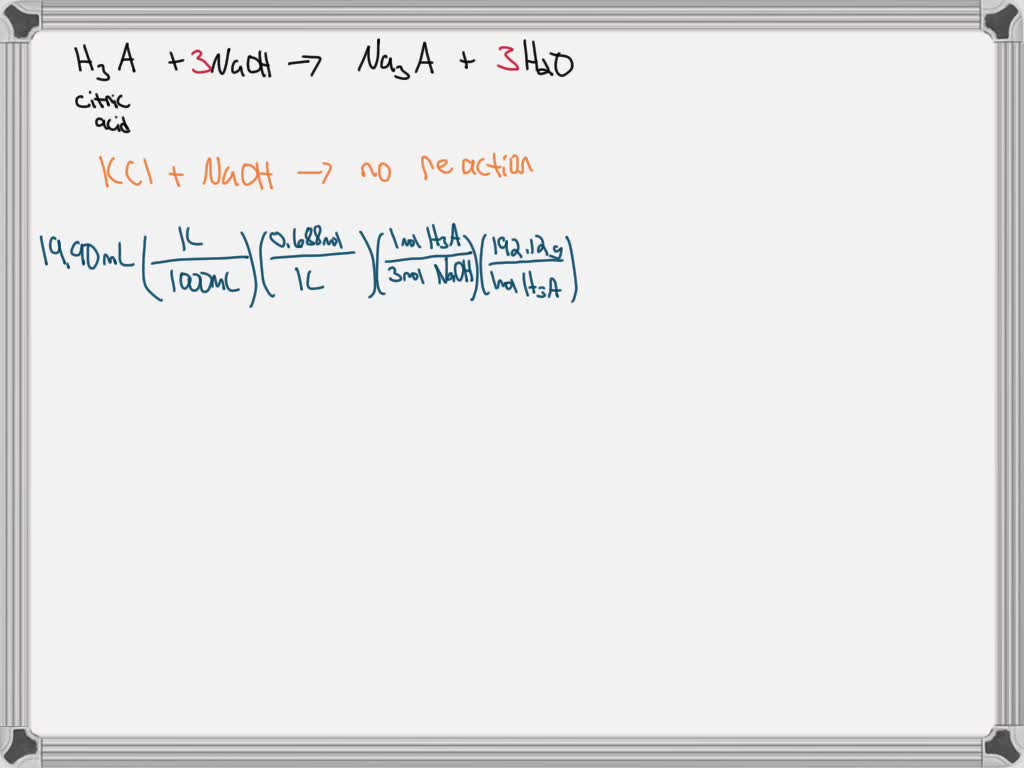 H₃A + 3NaOH → Na₃A + 3H₂O
citric
acid
KCl + NaOH → no reaction
19.90mL (1L/1000mL)(0.688mol/1L)(1mol H₃A/3mol NaOH)(192.12g/1mol H₃A)